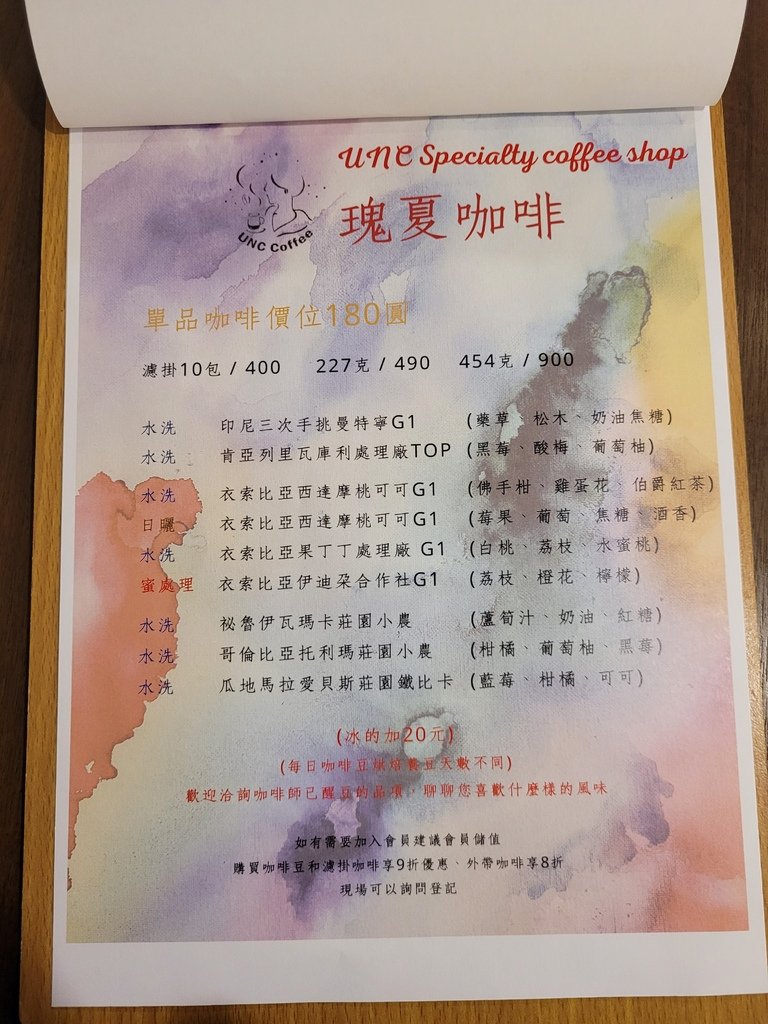 UNC Specialty coffee shop
UNC Coffee
瑰夏咖啡
單品咖啡價位180圓
濾掛10包 / 400 227克 / 490 454克 / 900
水洗 印尼三次手挑曼特寧G1 (藥草、松木、奶油焦糖)
水洗 肯亞列里瓦庫利處理廠TOP (黑莓、酸梅、葡萄柚)
水洗 衣索比亞西達摩桃可可G1 (佛手柑、雞蛋花、伯爵紅茶)
日曬 衣索比亞西達摩桃可可G1 (莓果、葡萄、焦糖、酒香)
水洗 衣索比亞果丁丁處理廠 G1 (白桃、荔枝、水蜜桃)
蜜處理 衣索比亞伊迪朶合作社G1 (荔枝、橙花、檸檬)
水洗 祕魯伊瓦瑪卡莊園小農 (蘆筍汁、奶油、紅糖)
水洗 哥倫比亞托利瑪莊園小農 (柑橘、葡萄柚、黑莓)
水洗 瓜地馬拉愛貝斯莊園鐵比卡 (藍莓、柑橘、可可)
(冰的加20元)
(每日咖啡豆烘焙養豆天數不同)
歡迎洽詢咖啡師已醒豆的品項，聊聊您喜歡什麼樣的風味
如有需要加入會員建議會員儲值
購買咖啡豆和濾掛咖啡享9折優惠、外帶咖啡享8折
現場可以詢問登記